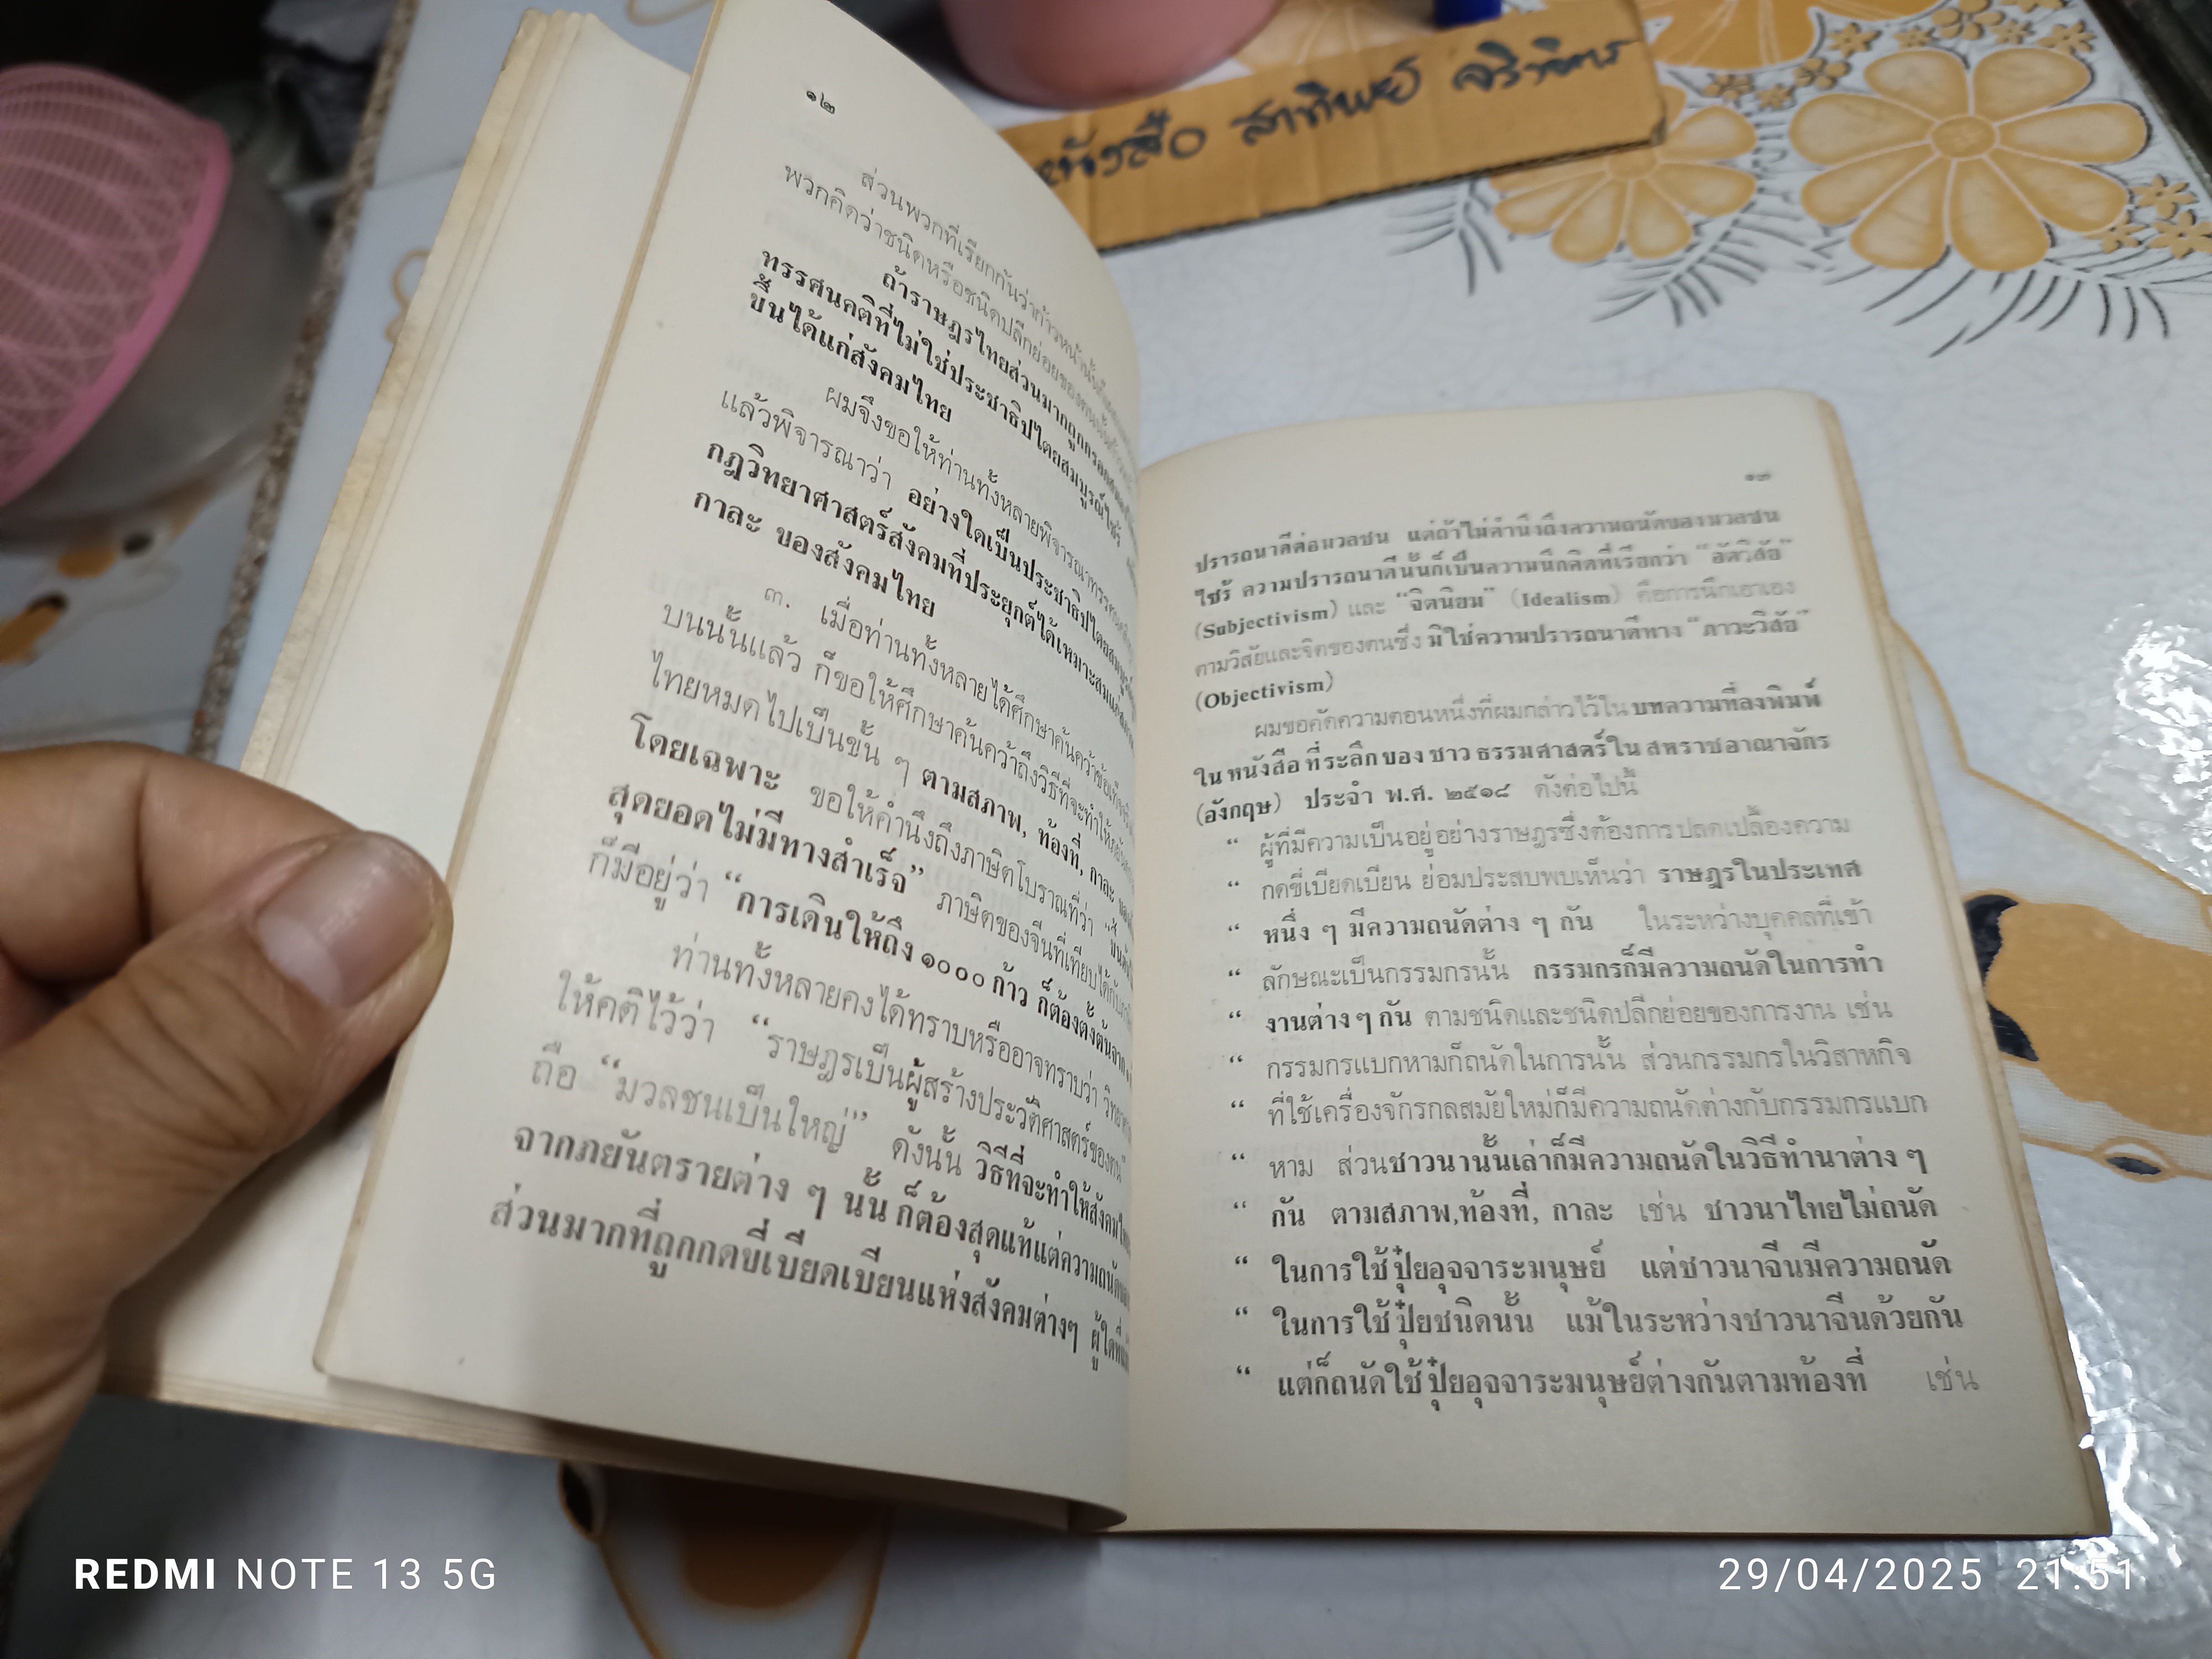 หนังสือ สาทิพย์
๑๒
ส่วนพวกที่เรียกกันว่าก้าวหน้านั้นก็
พวกคิดว่าชนิดหรือชนิดปลีกย่อยของตนนั้น
ถ้าราษฎรไทยส่วนมากถูก
ทรรศนคติที่ไม่ใช่ประชาธิปไตยสมบูรณ์ไซร้
ขึ้นได้แก่สังคมไทย
ผมจึงขอให้ท่านทั้งหลายพิจารณา
แล้วพิจารณาว่า อย่างใดเป็นประชาธิปไตยสมบูรณ์
กฎวิทยาศาสตร์สังคมที่ประยุกต์ได้เหมาะสมแก่
กาละ ของสังคมไทย
๓. เมื่อท่านทั้งหลายได้ศึกษาค้นคว้าข้อ
บนนั้นแล้ว ก็ขอให้ศึกษาค้นคว้าถึงวิธีที่จะทำให้
ไทยหมดไปเป็นขั้น ๆ ตามสภาพ, ท้องที่, กาละ
โดยเฉพาะ ขอให้คำนึงถึงภาษิตโบราณที่ว่า
สุดยอดไม่มีทางสำเร็จ” ภาษิตของจีนที่เทียบได้กับ
ก็มีอยู่ว่า “การเดินให้ถึง ๑๐๐๐ ก้าว ก็ต้องตั้งต้นจาก
ท่านทั้งหลายคงได้ทราบหรืออาจทราบว่า
ให้คติไว้ว่า “ราษฎรเป็นผู้สร้างประวัติศาสตร์ของตน”
ถือ “มวลชนเป็นใหญ่” ดังนั้น วิธีที่จะทำให้สังคม
จากภยันตรายต่าง ๆ นั้น ก็ต้องสุดแท้แต่ความถนัดของ
ส่วนมากที่ถูกกดขี่เบียดเบียนแห่งสังคมต่างๆ ผู้ใด
๑๓
ปรารถนาดีต่อมวลชน แต่ถ้าไม่คำนึงถึงความถนัดของมวลชน
ไซร้ ความปรารถนาดีนั้นก็เป็นความนึกคิดที่เรียกว่า “อัตวิสัย”
(Subjectivism) และ “จิตนิยม” (Idealism) คือการนึกเอาเอง
ตามวิสัยและจิตของตนซึ่ง มิใช่ความปรารถนาดีทาง “ภาวะวิสัย”
(Objectivism)
ผมขอคัดความตอนหนึ่งที่ผมกล่าวไว้ใน บทความที่ลงพิมพ์
ใน หนังสือ ที่ระลึก ของ ชาว ธรรมศาสตร์ ใน สหราชอาณาจักร
(อังกฤษ) ประจำ พ.ศ. ๒๕๑๘ ดังต่อไปนี้
“ ผู้ที่มีความเป็นอยู่อย่างราษฎรซึ่งต้องการปลดเปลื้องความ
“ กดขี่เบียดเบียน ย่อมประสบพบเห็นว่า ราษฎรในประเทศ
“ หนึ่ง ๆ มีความถนัดต่าง ๆ กัน ในระหว่างบุคคลที่เข้า
“ ลักษณะเป็นกรรมกรนั้น กรรมกรก็มีความถนัดในการทำ
“ งานต่าง ๆ กัน ตามชนิดและชนิดปลีกย่อยของการงาน เช่น
“ กรรมกรแบกหามก็ถนัดในการนั้น ส่วนกรรมกรในวิสาหกิจ
“ ที่ใช้เครื่องจักรกลสมัยใหม่ก็มีความถนัดต่างกับกรรมกรแบก
“ หาม ส่วนชาวนานั้นเล่าก็มีความถนัดในวิธีทำนาต่าง ๆ
“ กัน ตามสภาพ,ท้องที่, กาละ เช่น ชาวนาไทยไม่ถนัด
“ ในการใช้ปุ๋ยอุจจาระมนุษย์ แต่ชาวนาจีนมีความถนัด
“ ในการใช้ปุ๋ยชนิดนั้น แม้ในระหว่างชาวนาจีนด้วยกัน
“ แต่ก็ถนัดใช้ปุ๋ยอุจจาระมนุษย์ต่างกันตามท้องที่ เช่น
REDMI NOTE 13 5G
29/04/2025 21:51